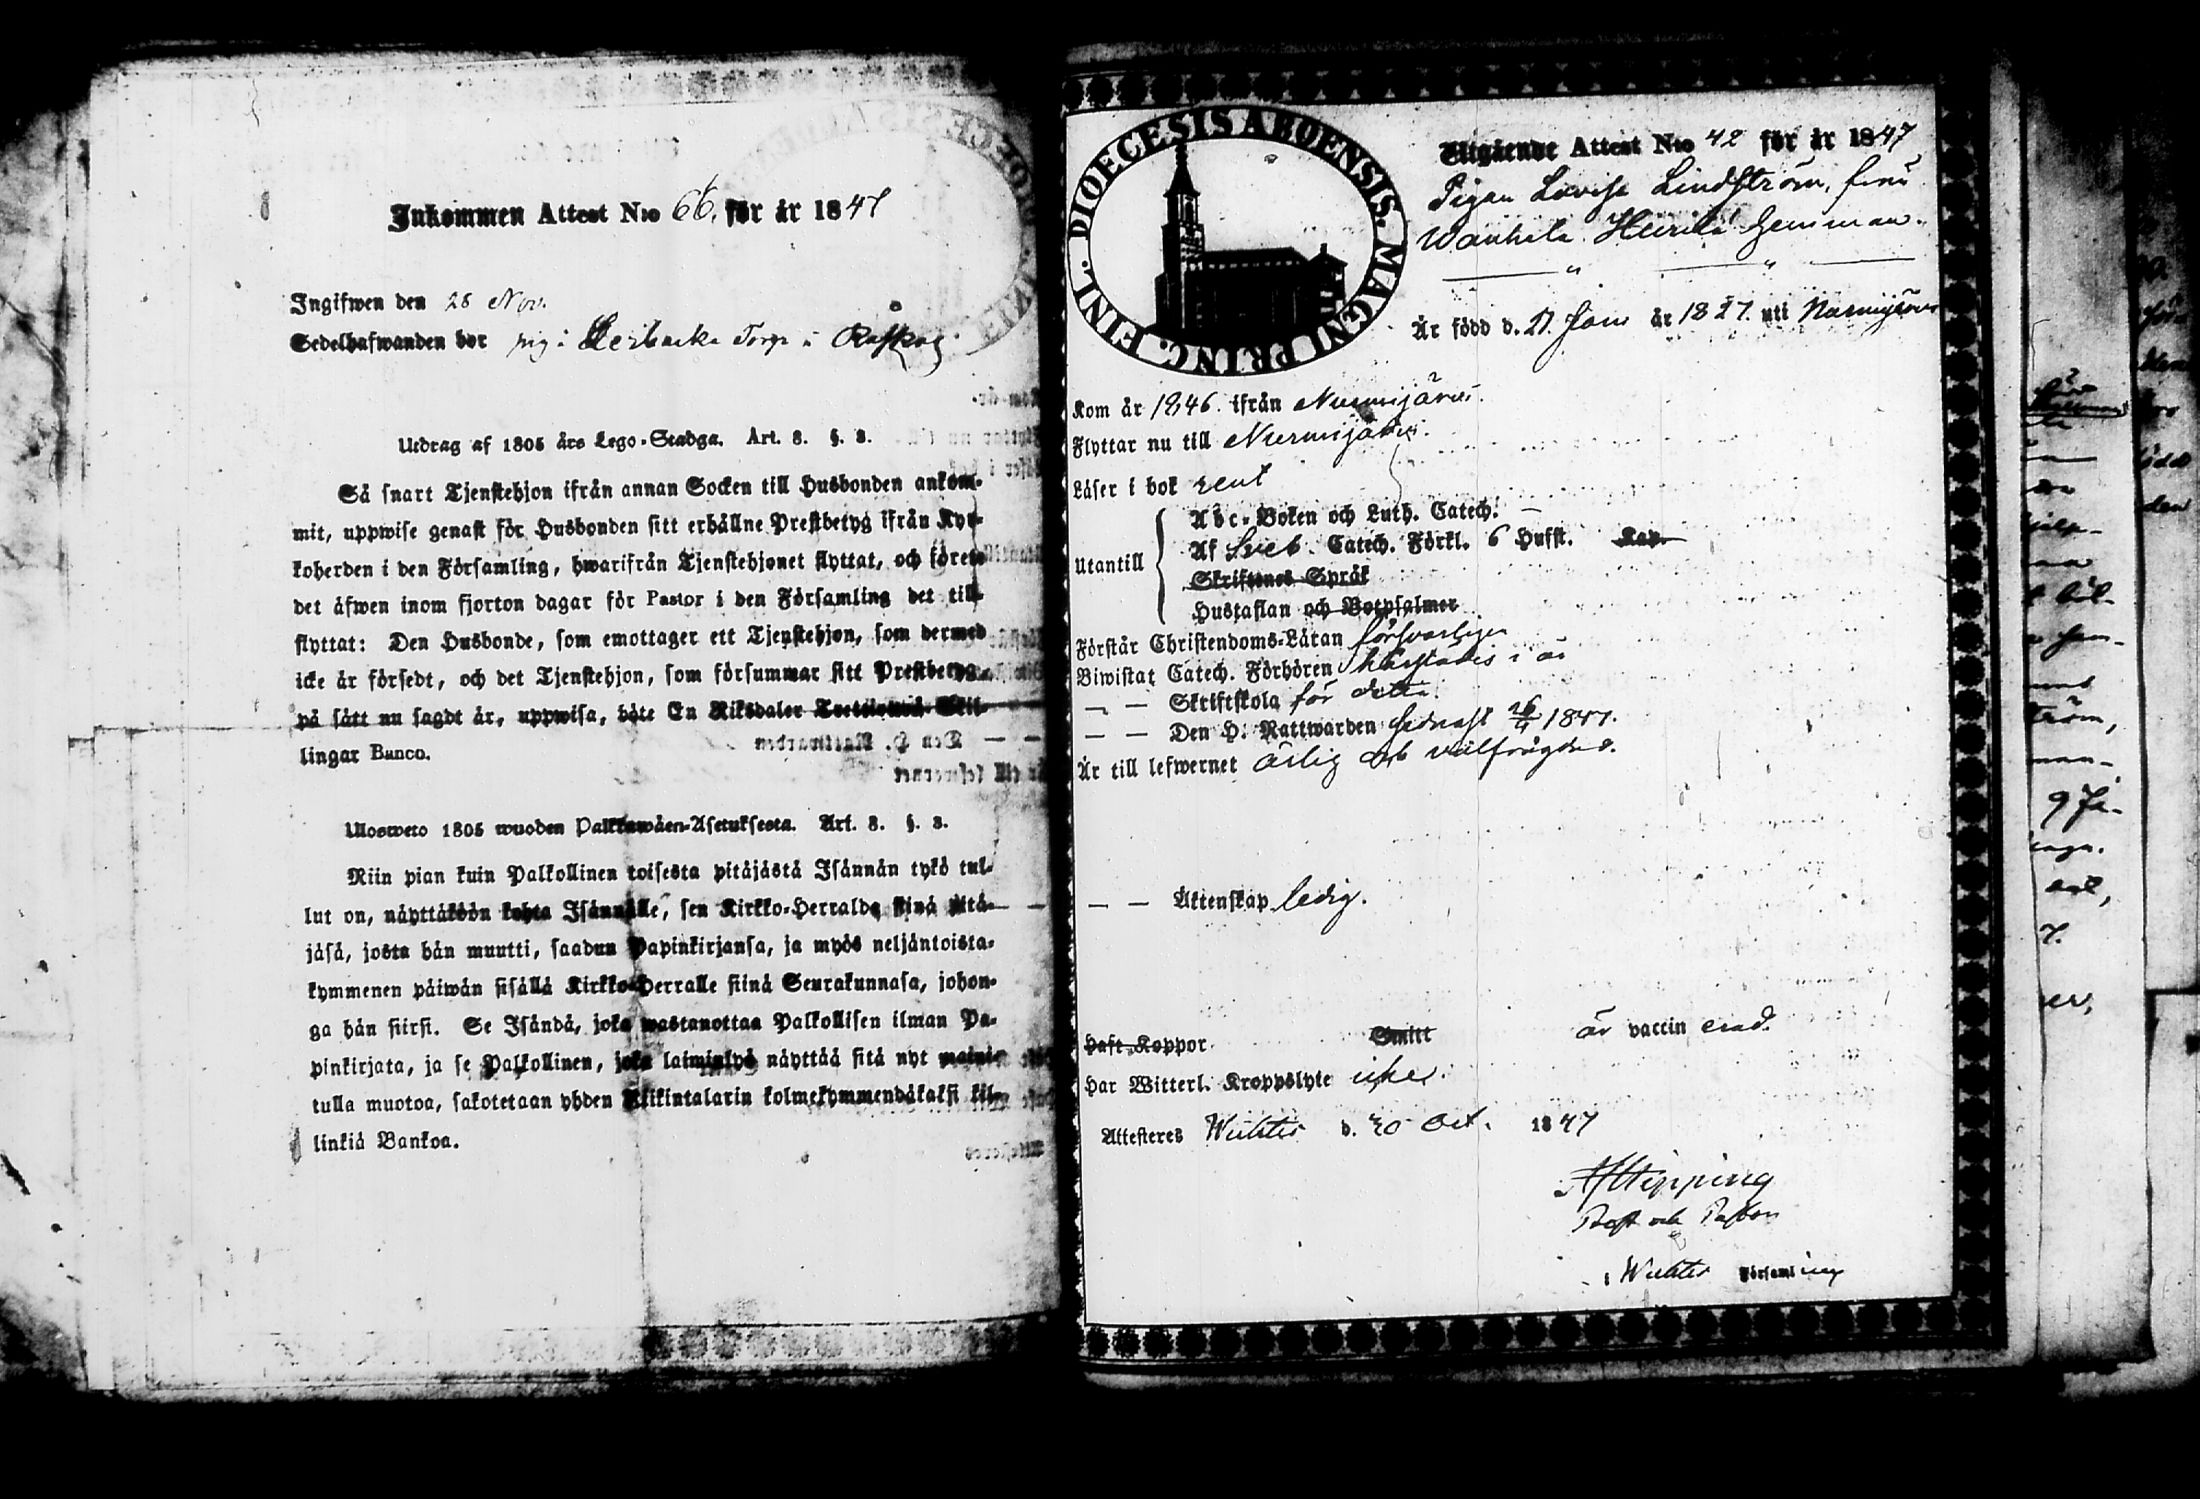 Inkommen Attest N:o 66. för år 1847
Ingifwen den 28 Nov.
Sedelhafwanden bor pig i Torp i Råskog.
Utdrag af 1805 års Lego-Stadga. Art. 8. §. 3.
Så snart Tjenstehjon ifrån annan Socken till Husbonden ankom-
mit, uppwise genast för Husbonden sitt erhållne Prestbetyg ifrån Kyr-
koherden i den Församling, hwarifrån Tjenstehjonet flyttat, och förete
det äfwen inom fjorton dagar för Pastor i den Församling det till-
flyttat: Den Husbonde, som emottager ett Tjenstehjon, som dermed
icke är försedt, och det Tjenstehjon, som försummar sitt Prestbetyg
på sätt nu sagdt är, uppwisa, böte En Riksdaler Trettiotwå Skil-
lingar Banco.
Ulosweto 1805 wuoden Palkkawäen-Asetuksesta. Art. 8. §. 3.
Niin pian kuin Palkollinen toisesta pitäjästä Isännän tykö tul-
lut on, näyttäköön kohta Isännälle, sen Kirkko-Herralda siinä pitä-
jäsä, josta hän muutti, saadun Papinkirjansa, ja myös neljäntoista-
kymmenen päiwän sisällä Kirkko-Herralle siinä Seurakunnasa, johon-
ga hän siirsi. Se Isändä, joka wastanottaa Palkollisen ilman Pa-
pinkirjata, ja se Palkollinen, joka laiminlyö näyttää sitä nyt mainit-
tulla muotoa, sakotetaan yhden Riikintalarin kolmekymmendäkaksi kil-
linkiä Bankoa.
DIOECESIS ABOENSIS. MAGNI PRINC. FINL.
Utgående Attest N:o 42 för år 1847
Pigan Lovisa Lindström, från
Wanhala Heikkilä hemman.
Är född d. 27 Jan år 1827 uti Nurmijärvi
Kom år 1846. ifrån Nurmijärvi.
Flyttar nu till Nurmijärvi.
Läser i bok rent
Utantill
Abc-Boken och Luth. Catech. —
Af Sveb. Catech. Förkl. 6 Hufst. Kap.
Skriftenes Språk
Hustaflan och Botpsalmer
Förstår Christendoms-Läran försvarligen
Biwistat Catech. Förhören härstädes i år
— — Skriftskola för detta.
— — Den H. Nattwarden sednast 1847.
Är till lefwernet ärlig och välfrägdad.
— — Äktenskap ledig.
Haft Koppor Smitt är vaccin erad.
Har Witterl. Kroppslyte icke.
Attesteras Wichtis d. 30 Oct. 1847
AfHipping
Prost och Pastor
i Wichtis Församling